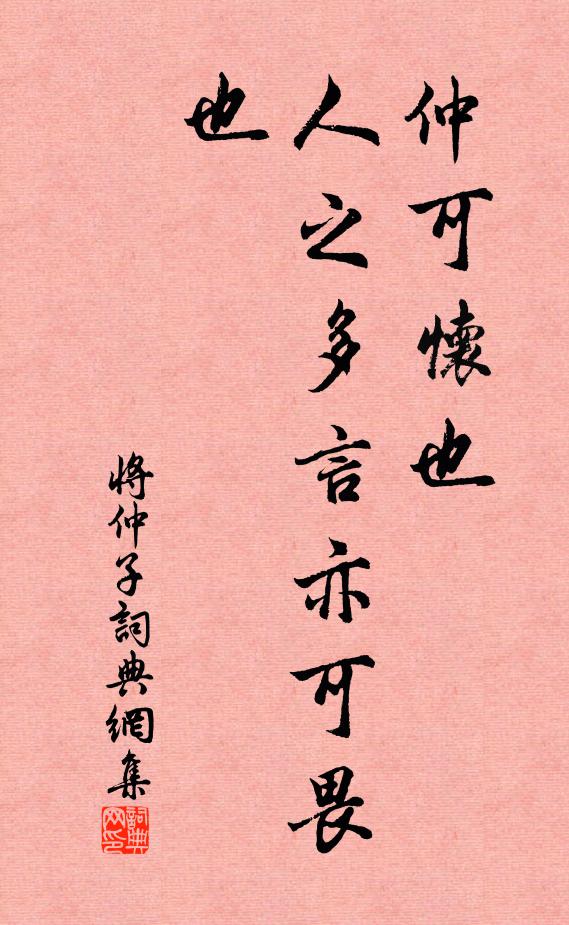 仲可懷也
人之多言亦可畏
也
將仲子詞典網集
詞典
网印